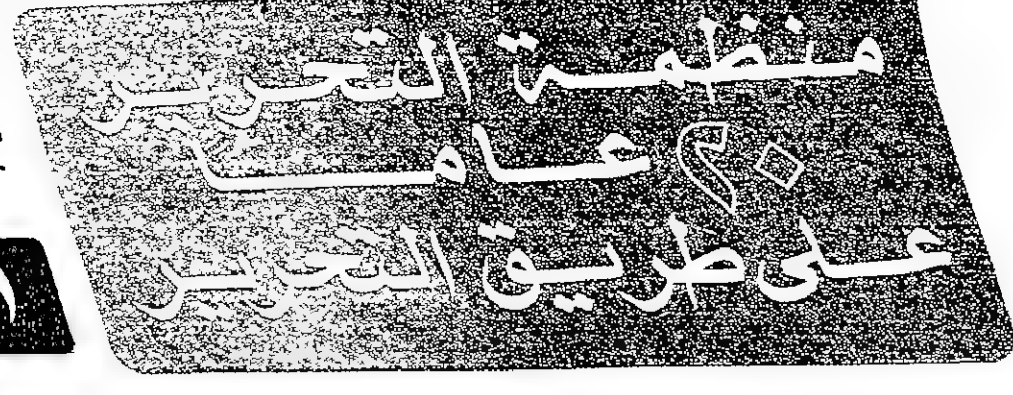 منظمة التحرير
٢٠ عاما
على طريق التحرير